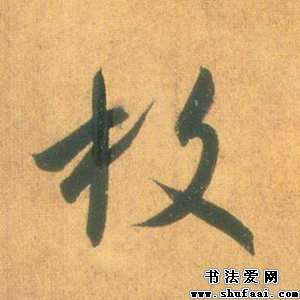 枚
书法爱网
www.shufaai.com